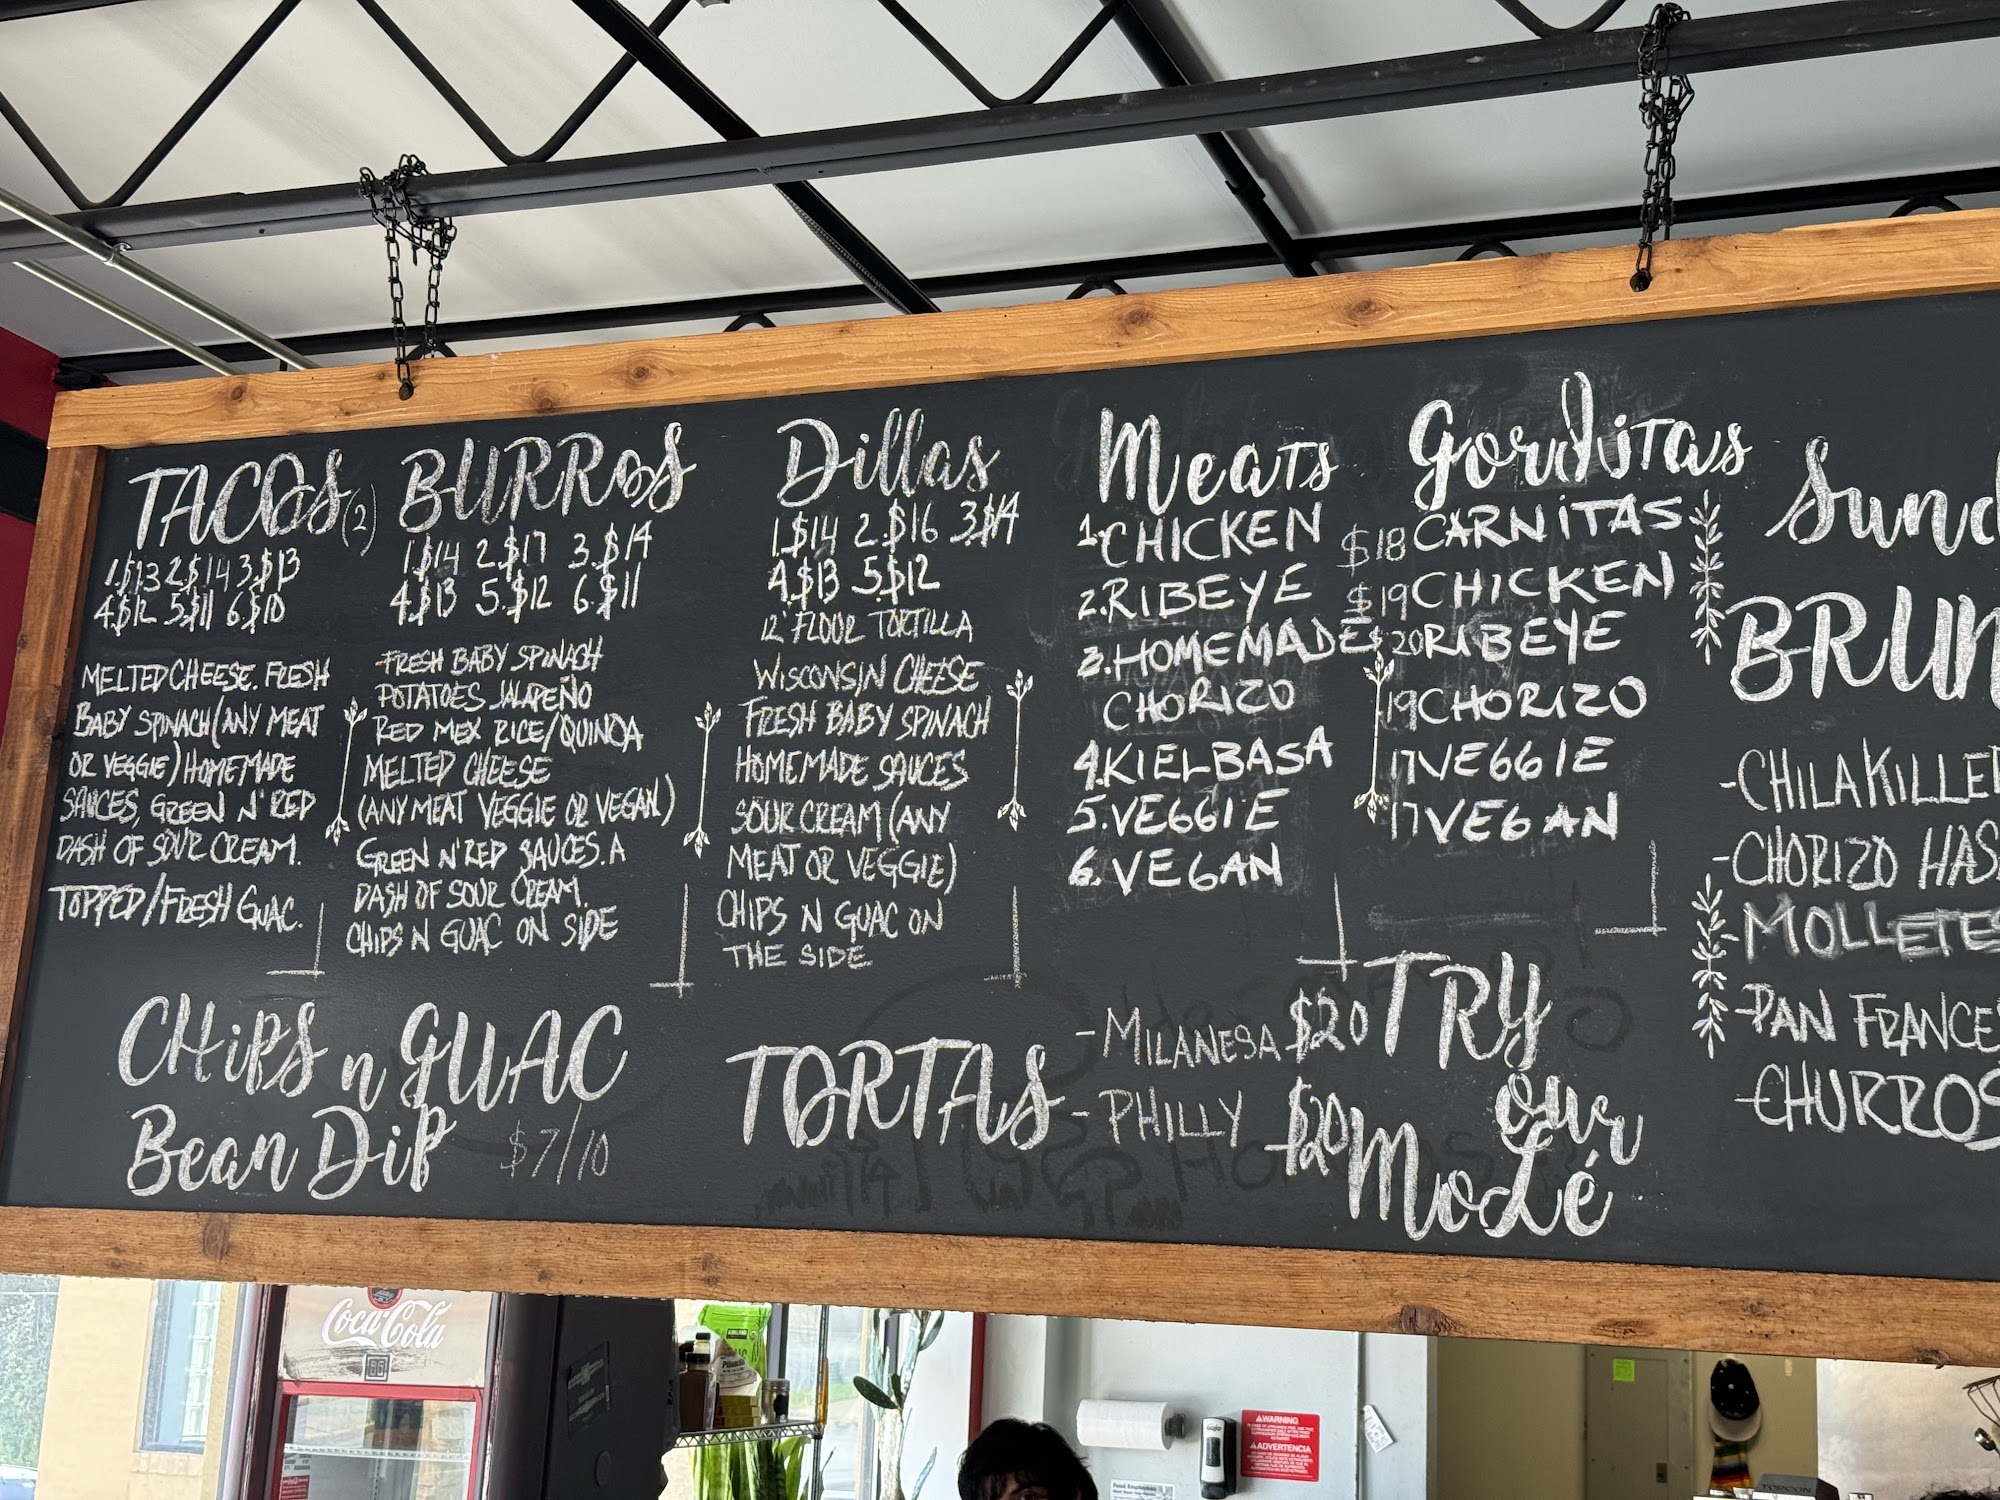 TACOS (2)
1.$13 2.$14 3.$13
4.$12 5.$11 6.$10
MELTED CHEESE. FRESH
BABY SPINACH (ANY MEAT
OR VEGGIE) HOMEMADE
SAUCES, GREEN N' RED
DASH OF SOUR CREAM.
TOPPED/FRESH GUAC.
BURROS
1.$14 2.$17 3.$14
4.$13 5.$12 6.$11
-FRESH BABY SPINACH
POTATOES JALAPEÑO
RED MEX RICE/QUINOA
MELTED CHEESE
(ANY MEAT VEGGIE OR VEGAN)
GREEN N' RED SAUCES. A
DASH OF SOUR CREAM.
CHIPS N GUAC ON SIDE
Dillas
1.$14 2.$16 3.$14
4.$13 5.$12
12" FLOUR TORTILLA
WISCONSIN CHEESE
FRESH BABY SPINACH
HOMEMADE SAUCES
SOUR CREAM (ANY
MEAT OR VEGGIE)
CHIPS N GUAC ON
THE SIDE
Meats
1.CHICKEN
2.RIBEYE
3.HOMEMADE
CHORIZO
4.KIELBASA
5.VEGGIE
6.VEGAN
Gorditas
$18 CARNITAS
$19 CHICKEN
$20 RIBEYE
19 CHORIZO
17 VEGGIE
17 VEGAN
BRUN
-CHILAKILLE
-CHORIZO HAS
MOLLETES
-PAN FRANCE
-CHURROS
CHiPS n GUAC
Bean DiP $7/10
TORTAS
-MILANESA $20
-PHILLY $20
TRY
our
Molé
Coca-Cola
WARNING
ADVERTENCIA
TOPCON